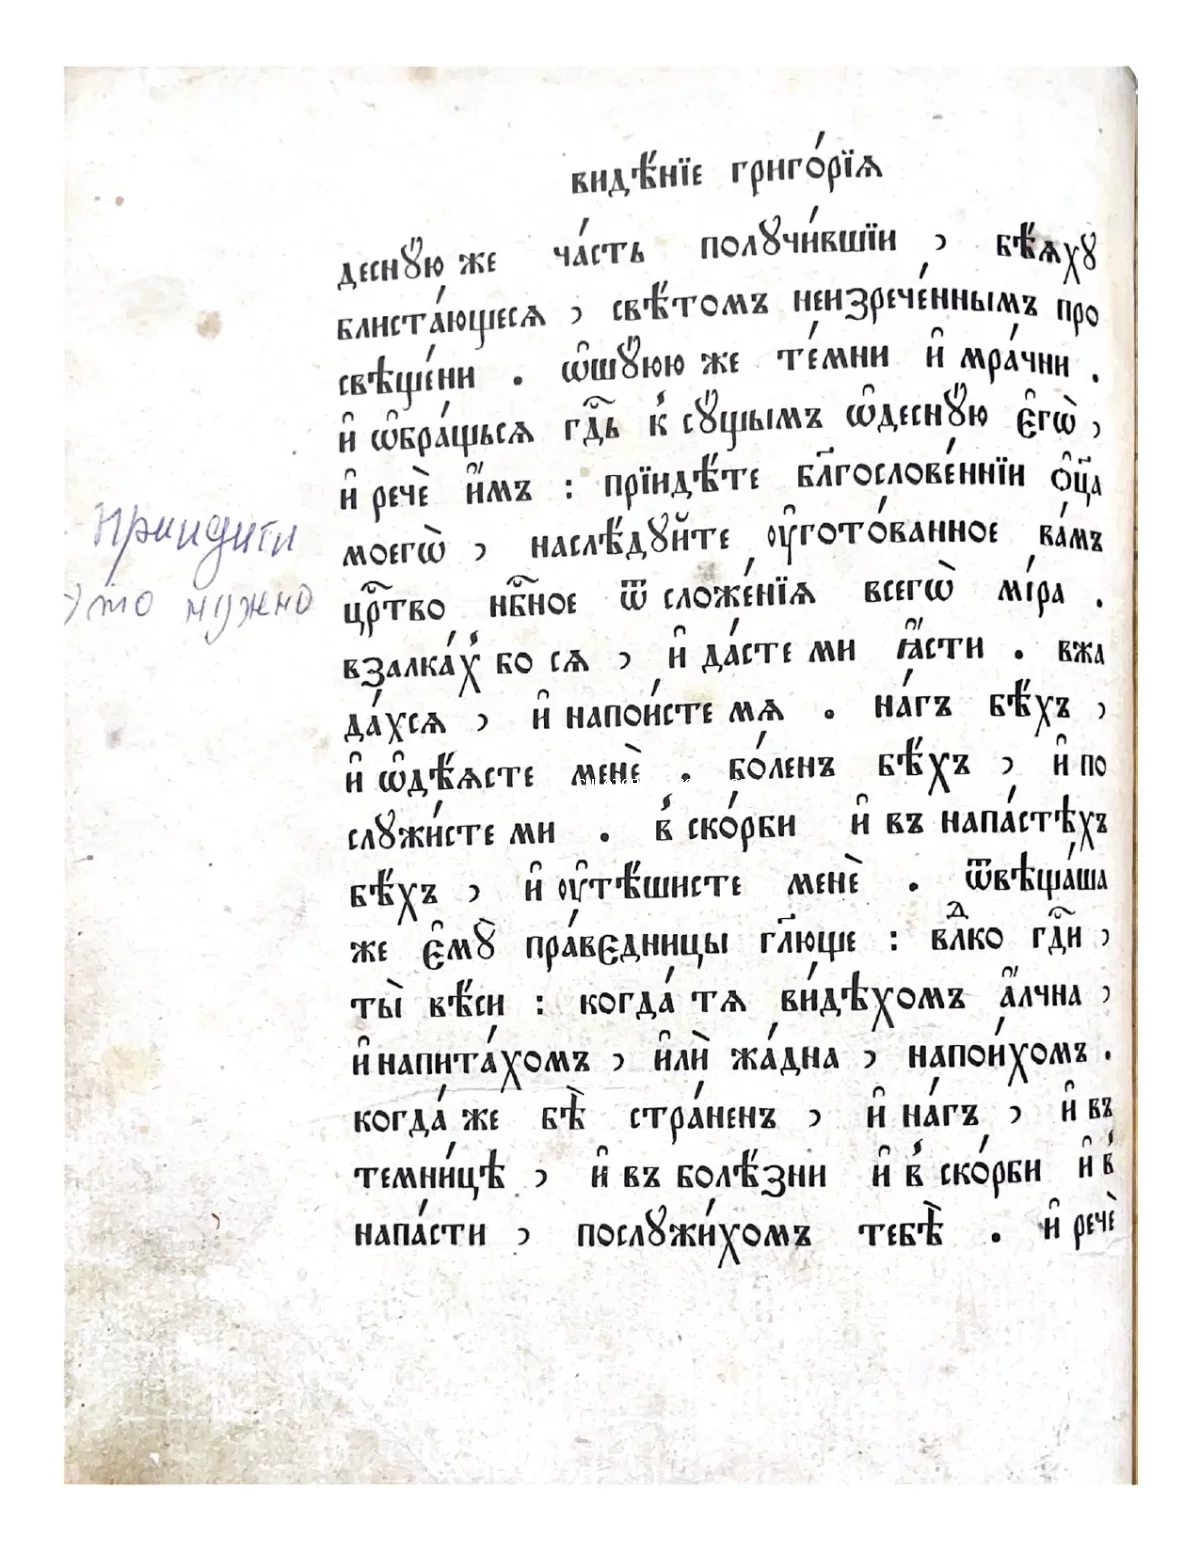 видѣ́нїе григо́рїѧ
деснꙋ́ю же ча́сть полꙋчи́вшїи , бѣ́ѧхꙋ
блиста́ющесѧ , свѣ́томъ неизрече́ннымъ про
свѣще́ни . ѡ҆шꙋ́юю же те́мни и҆ мра́чни .
и҆ ѡ҆бра́щьсѧ гдⷭ҇ь к̾ сꙋ́щымъ ѡ҆деснꙋ́ю є҆гѡ̀ ,
и҆ речѐ и҆́мъ : прїидѣ́те бл҃гослове́ннїи ѻ҆ц҃а
моегѡ̀ , наслѣ́дꙋйте ᲂу҆гото́ванное ва́мъ
црⷭ҇тво нбⷭ҇ное ѿ сложе́нїѧ всегѡ̀ мі́ра .
взалка́х̾ бо сѧ , и҆ да́сте ми ꙗ҆́сти . вжа
да́хсѧ , и҆ напои́сте мѧ . на́гъ бѣ́хъ ,
и҆ ѡ҆дѣ́ѧсте менѐ . бо́ленъ бѣ́хъ , и҆ по
слꙋжи́сте ми . в̾ ско́рби и҆ въ напа́стѣхъ
бѣ́хъ , и҆ ᲂу҆тѣ́шисте менѐ . ѿвѣща́ша
же є҆мꙋ̀ пра́вєдницы гл҃юще : влⷣко гдⷭ҇и ,
ты̀ вѣ́си : когда́ тѧ ви́дѣхомъ а҆́лчна ,
и҆ напита́хомъ , и҆лѝ жа́дна , напои́хомъ .
когда́ же бѣ̀ стра́ненъ , и҆ на́гъ , и҆ въ
темни́цѣ , и҆ въ болѣ́зни и҆ в̾ ско́рби и҆ в̾
напа́сти , послꙋжи́хомъ тебѣ̀ . и҆ речѐ
приидити
это нужно